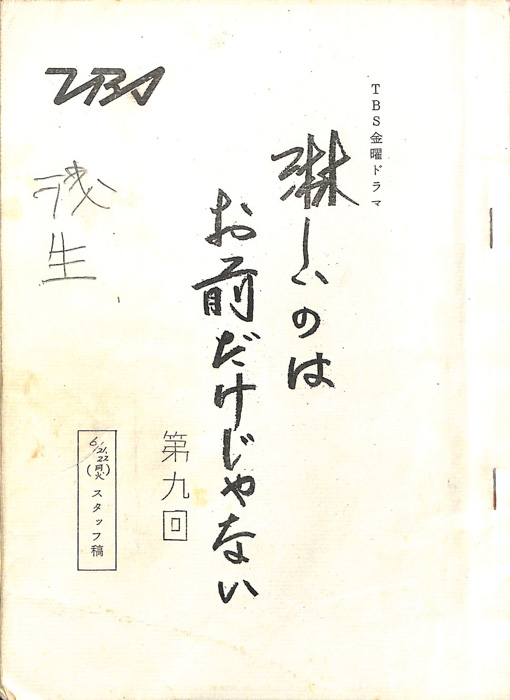 TBS金曜ドラマ
淋しいのは
お前だけじゃない
第九回
TBS
6/21.22
(月火)
スタッフ稿